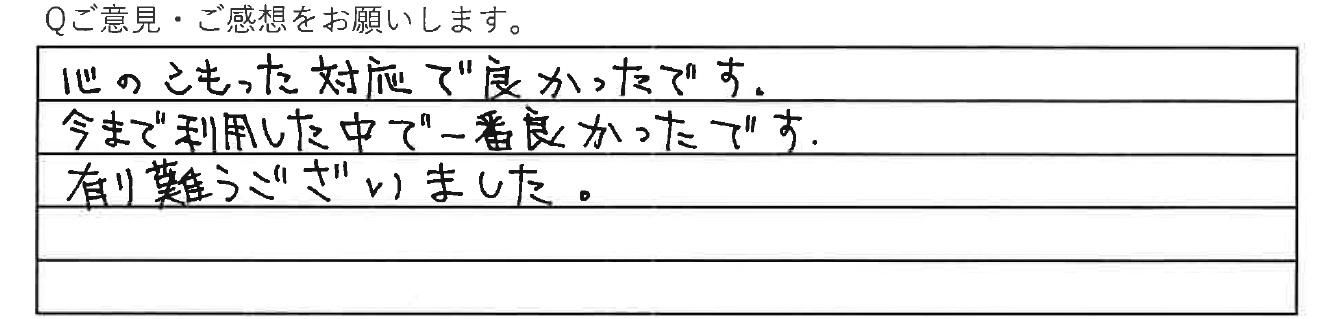 Qご意見・ご感想をお願いします。
心のこもった対応で良かったです.
今まで利用した中で一番良かったです.
有り難うございました。